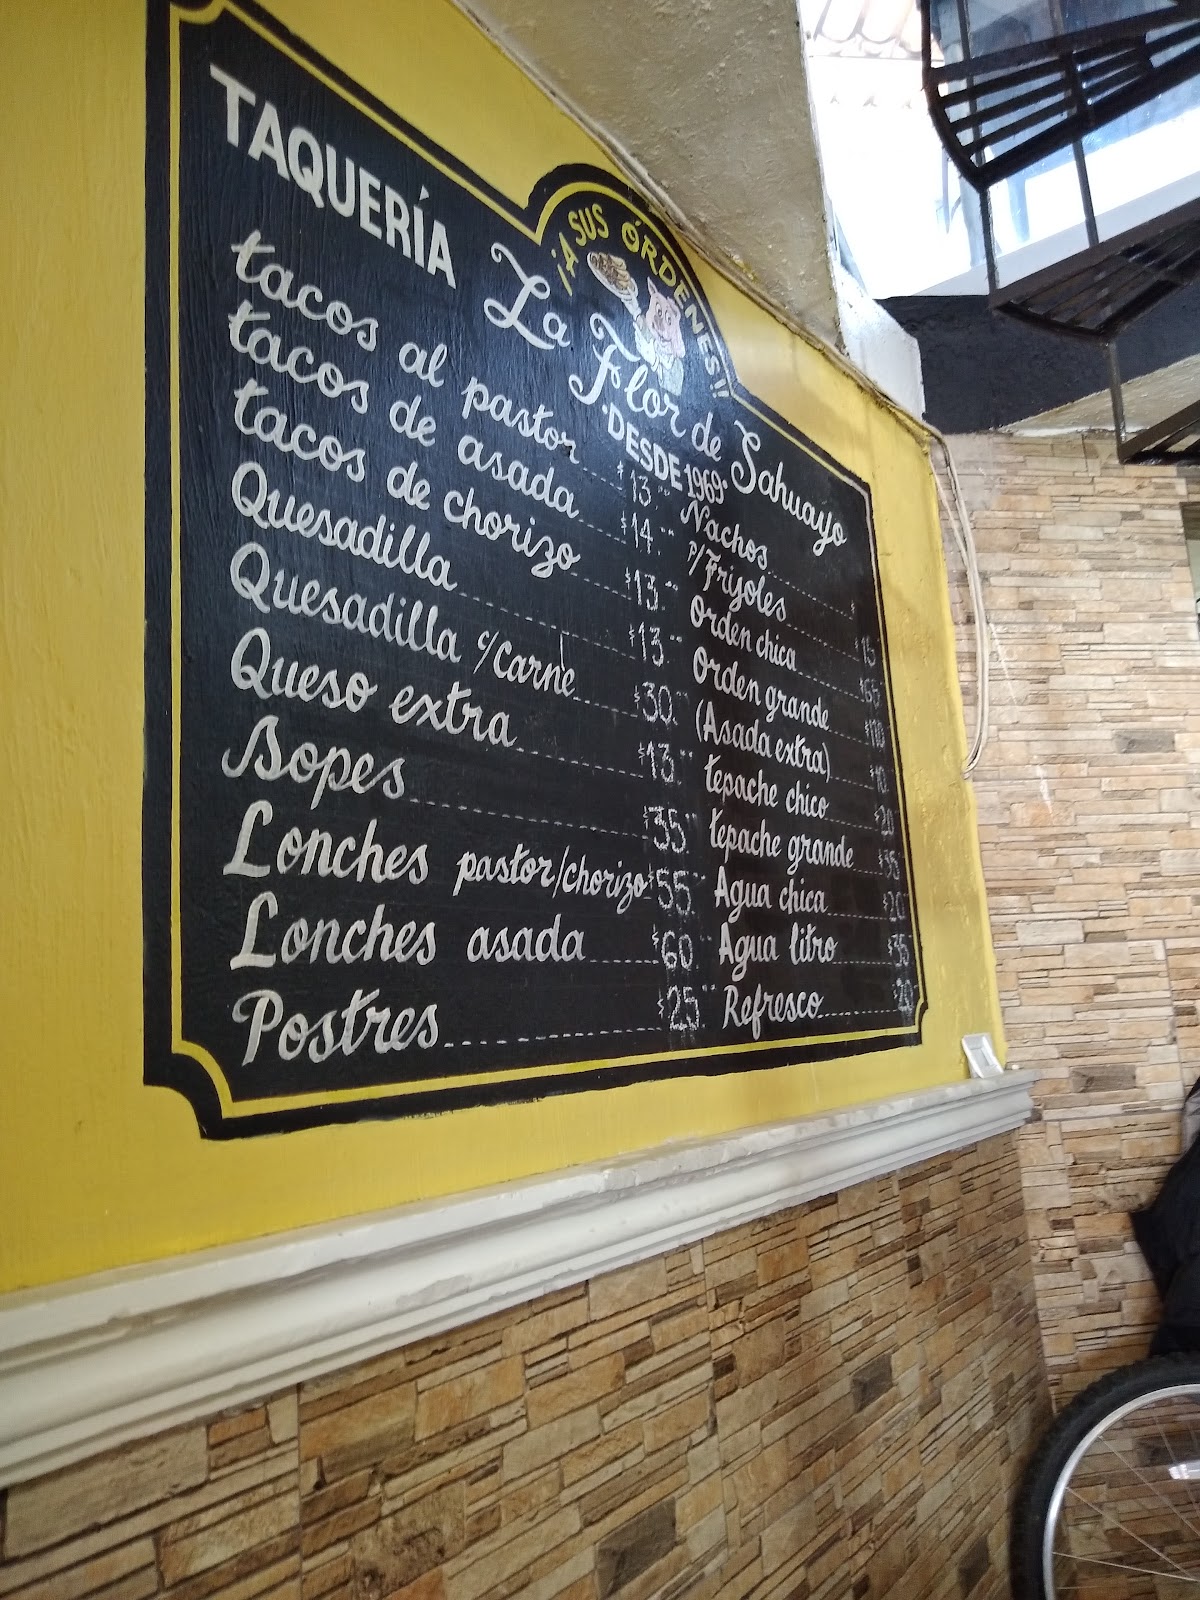 ¡¡A SUS ÓRDENES!!
TAQUERÍA La Flor de Sahuayo
·DESDE 1969·
tacos al pastor $13.
tacos de asada $14.
tacos de chorizo $13.
Quesadilla $13.
Quesadilla c/carne $30.
Queso extra $13.
Sopes $35.
Lonches pastor/chorizo $55.
Lonches asada $60.
Postres $25.
Nachos
p/Frijoles $15
Orden chica $65
Orden grande $110
(Asada extra) $10
tepache chico $20
tepache grande $35
Agua chica $20
Agua litro $35
Refresco $20